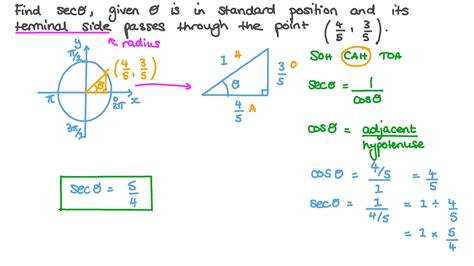 Find secθ, given θ is in standard position and its
terminal side passes through the point (4/5, 3/5).
radius
y
π/2
(4/5, 3/5)
θ
π
0
2π
x
3π/2
1 H
3/5 O
θ
4/5 A
SOH CAH TOA
secθ = 1/cosθ
cosθ = adjacent/hypotenuse
cosθ = (4/5)/1 = 4/5
secθ = 1/(4/5) = 1 ÷ 4/5
= 1 × 5/4
secθ = 5/4